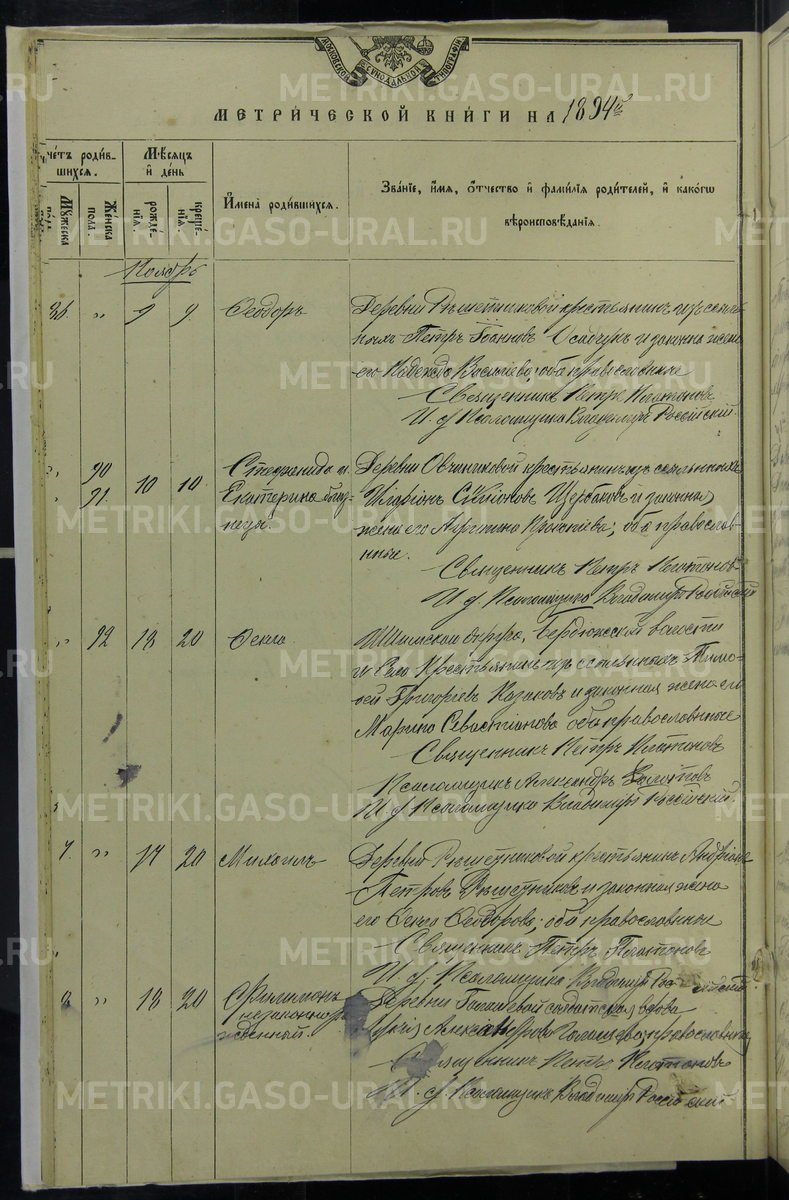 МОСКОВСКОЙ СѴНОДАЛЬНОЙ ТИПОГРАФІИ
МЕТРИЧЕСКОЙ КНИГИ НА 1894й
Счетъ родившихся.
Мужеска пола.
Женска пола.
Мѣсяцъ и день
рожденія.
крещенія.
Имена родившихся.
Званіе, имя, отчество и фамилія родителей, и какогω
вѣроисповѣданія.
Ноябрь
36. " 9 9. Ѳеодоръ
Деревни крестьянинъ изъ
Петръ Іоанновъ и законная жена
его Надежда обa православные
Священникъ Петръ Платоновъ
И. д. Псаломщика Владимиръ Россійскій.
" 90
" 91. 10 10. Стефанида и
Екатерина близ-
нецы.
Деревни Овчинниковой крестьянинъ изъ ссыльныхъ
Иларіонъ Щербаковъ и законная
жена его оба православ-
ные.
Священникъ Петръ Платоновъ
И. д. Псаломщика Владимиръ Россійскій
" 92 18 20 Ѳекла.
Ишимскаго округа, Бердюжской волости
и села Крестьянинъ изъ ссыльныхъ Тимо-
ѳей Григорьевъ Казаковъ и законная жена его
Марина Севастіанова оба православные
Священникъ Петръ Платоновъ
Псаломщикъ Александръ
И. д. Псаломщика Владимиръ Россійскій.
7. " 17 20 Михаилъ
Деревни Рѣшетниковой крестьянинъ Андріанъ
Петровъ Рѣшетниковъ и законная жена
его Ѳекла Ѳеодорова; оба православные
Священникъ Петръ Платоновъ
И. д. Псаломщика Владимиръ Россійскій.
8 " 18 20 Филимонъ
незаконнорож-
денный.
Деревни солдатская вдова
Александрова православная
Священникъ Петръ Платоновъ
И. д. Псаломщика Владимиръ Россійскій
METRIKI.GASO-URAL.RU